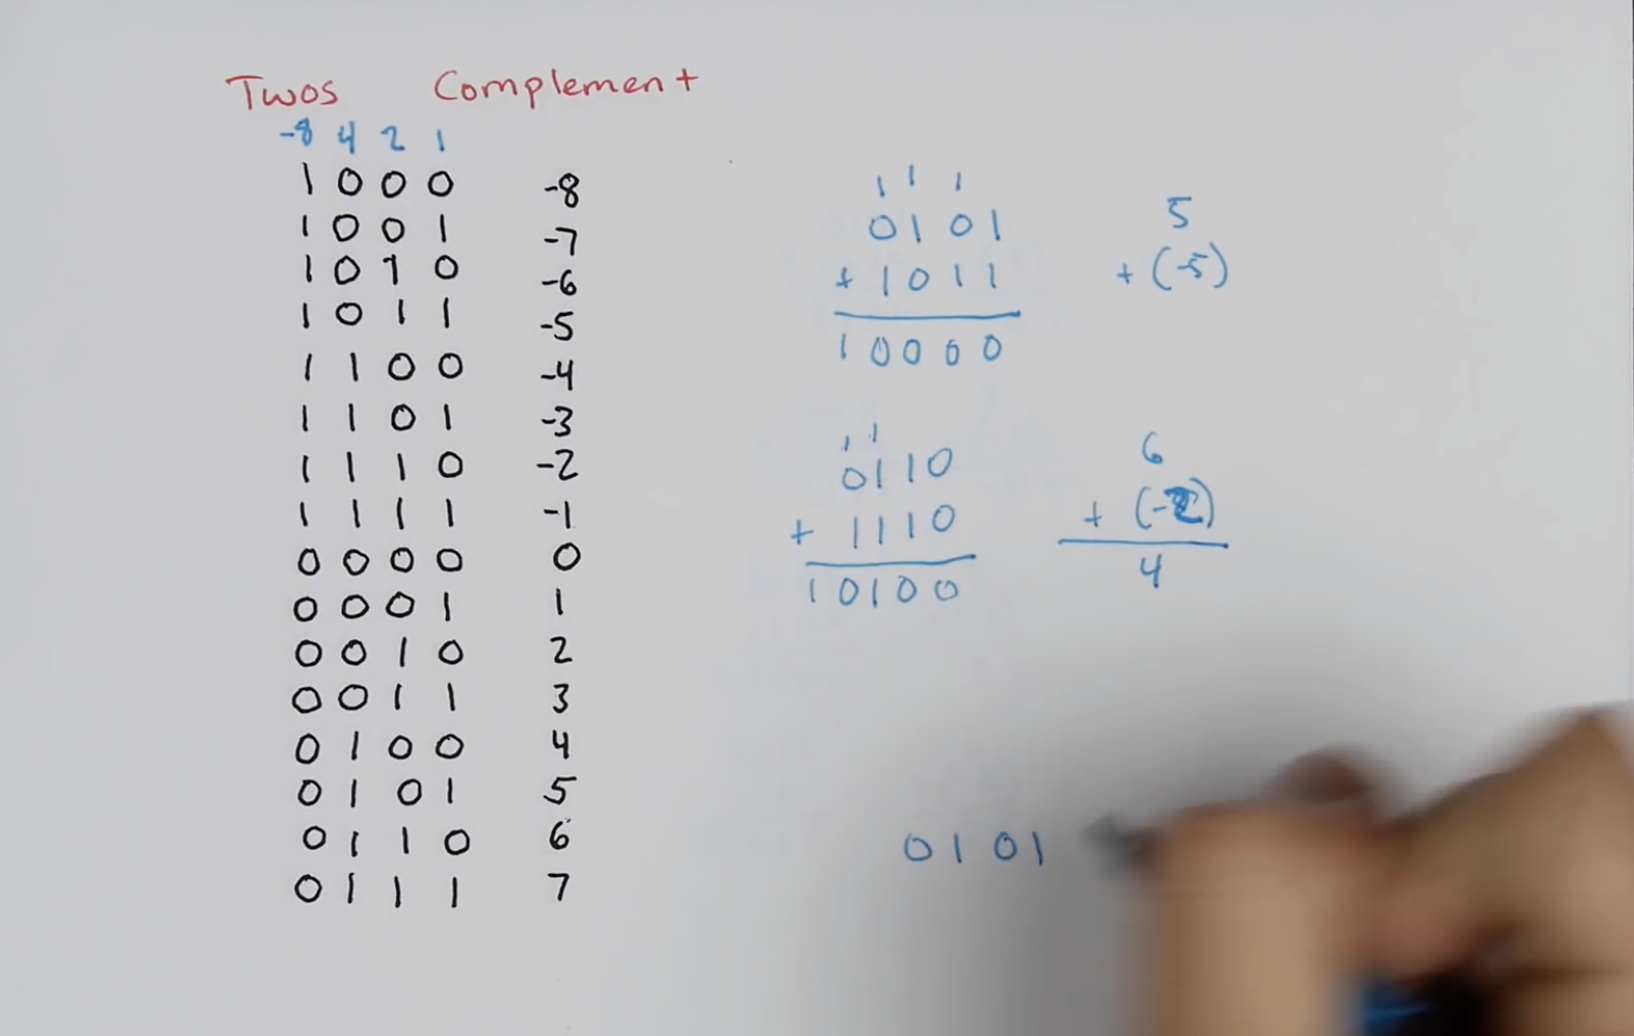 Twos Complement
-8 4 2 1
1 0 0 0 -8
1 0 0 1 -7
1 0 1 0 -6
1 0 1 1 -5
1 1 0 0 -4
1 1 0 1 -3
1 1 1 0 -2
1 1 1 1 -1
0 0 0 0 0
0 0 0 1 1
0 0 1 0 2
0 0 1 1 3
0 1 0 0 4
0 1 0 1 5
0 1 1 0 6
0 1 1 1 7
1 1 1
0101 5
+ 1011 + (-5)
10000
1 1
0110 6
+ 1110 + (-2)
10100 4
0101